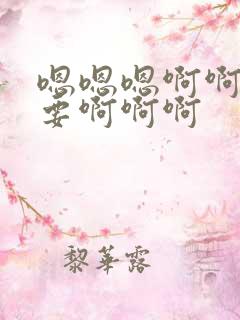 嗯嗯嗯啊啊
要啊啊啊
黎華露